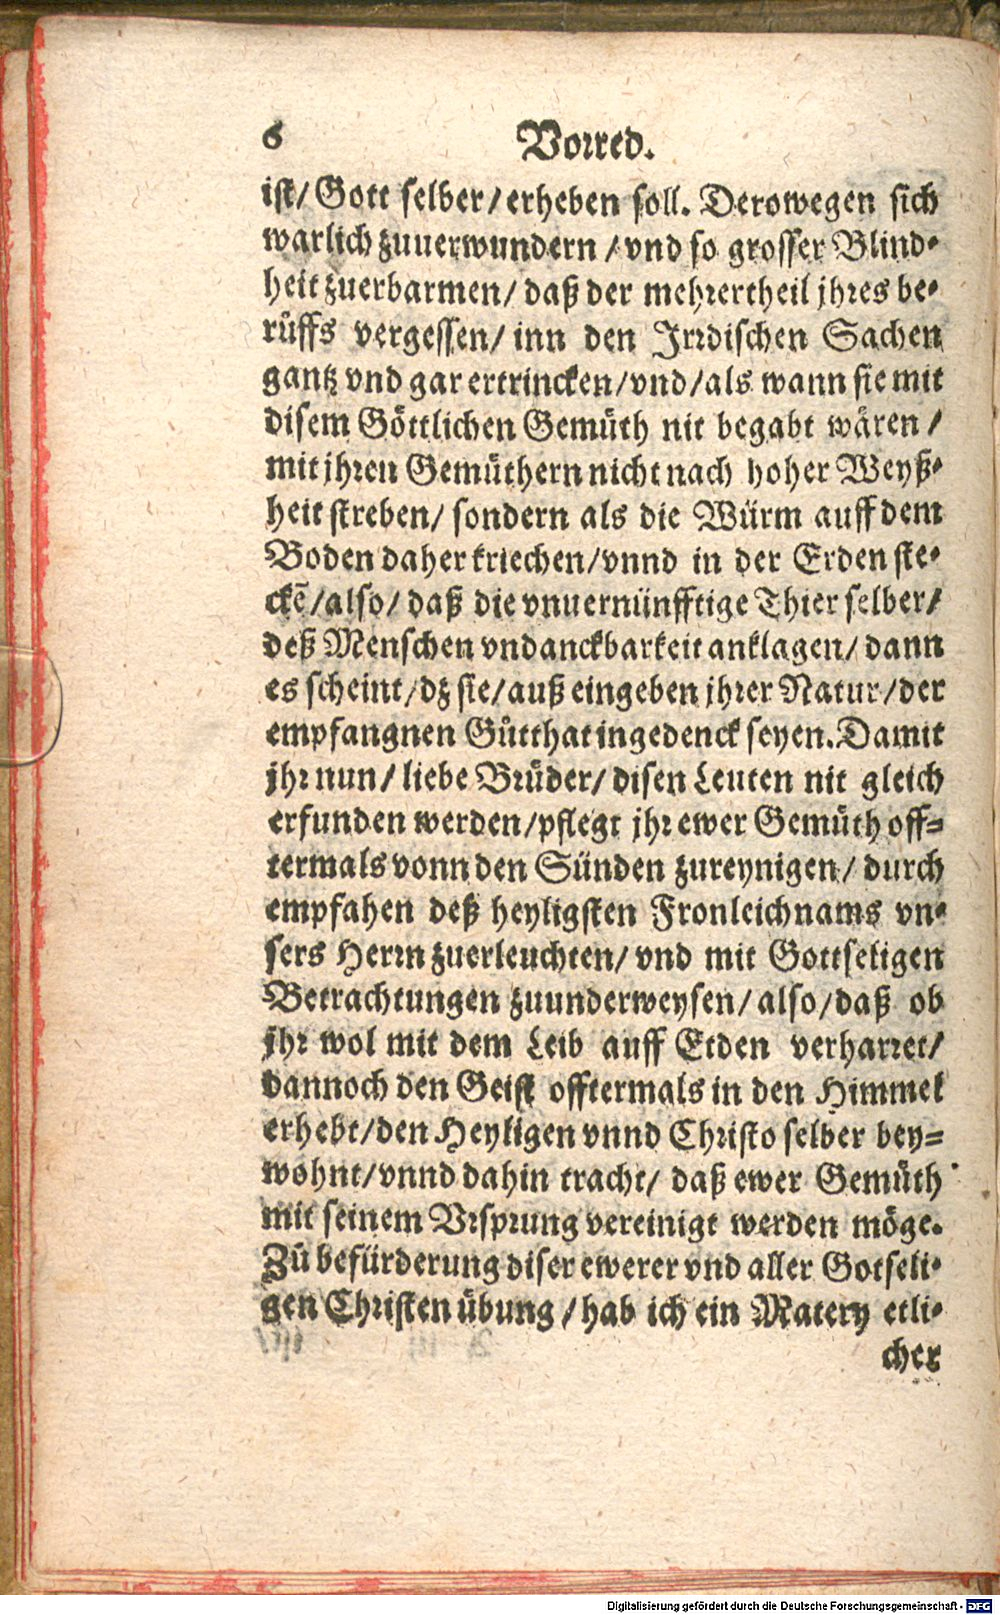 6 Vorred.
ist/ Gott selber/ erheben soll. Derowegen sich
warlich zuuerwundern / vnd so grosser Blind-
heit zuerbarmen/ daß der mehrertheil jhres be-
rüffs vergessen/ inn den Jrrdischen Sachen
gantz vnd gar ertrincken/ vnd/ als wann sie mit
disem Göttlichen Gemüth nit begabt wären /
mit jhren Gemüthern nicht nach hoher Weyß-
heit streben/ sondern als die Würm auff dem
Boden daher kriechen/ vnnd in der Erden ste-
ckē/ also/ daß die vnuernünfftige Thier selber/
deß Menschen vndanckbarkeit anklagen/ dann
es scheint/ dz sie/ auß eingeben jhrer Natur/ der
empfangnen Gůtthat ingedenck seyen. Damit
jhr nun/ liebe Brüder/ disen Leuten nit gleich
erfunden werden/ pflegt jhr ewer Gemüth off-
termals vonn den Sünden zureynigen/ durch
empfahen deß heyligsten Fronleichnams vn-
sers Herrn zuerleuchten/ vnd mit Gottseligen
Betrachtungen zuunderweysen/ also/ daß ob
jhr wol mit dem Leib auff Erden verharret/
dannoch den Geist offtermals in den Himmel
erhebt/ den Heyligen vnnd Christo selber bey-
wohnt/ vnnd dahin tracht/ daß ewer Gemüth
mit seinem Vrsprung vereinigt werden möge.
Zů befürderung diser ewerer vnd aller Gotseli-
gen Christen übung / hab ich ein Matery etli-
cher
Digitalisierung gefördert durch die Deutsche Forschungsgemeinschaft - DFG